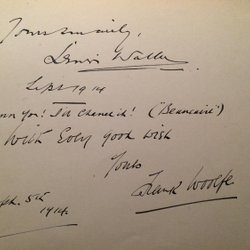 Yours sincerely,
Lewis Waller
Sept 1914
you! I'd chance it! ("Beaucaire")
With Every good wish
Yours
Frank Woolfe
5th
1914.